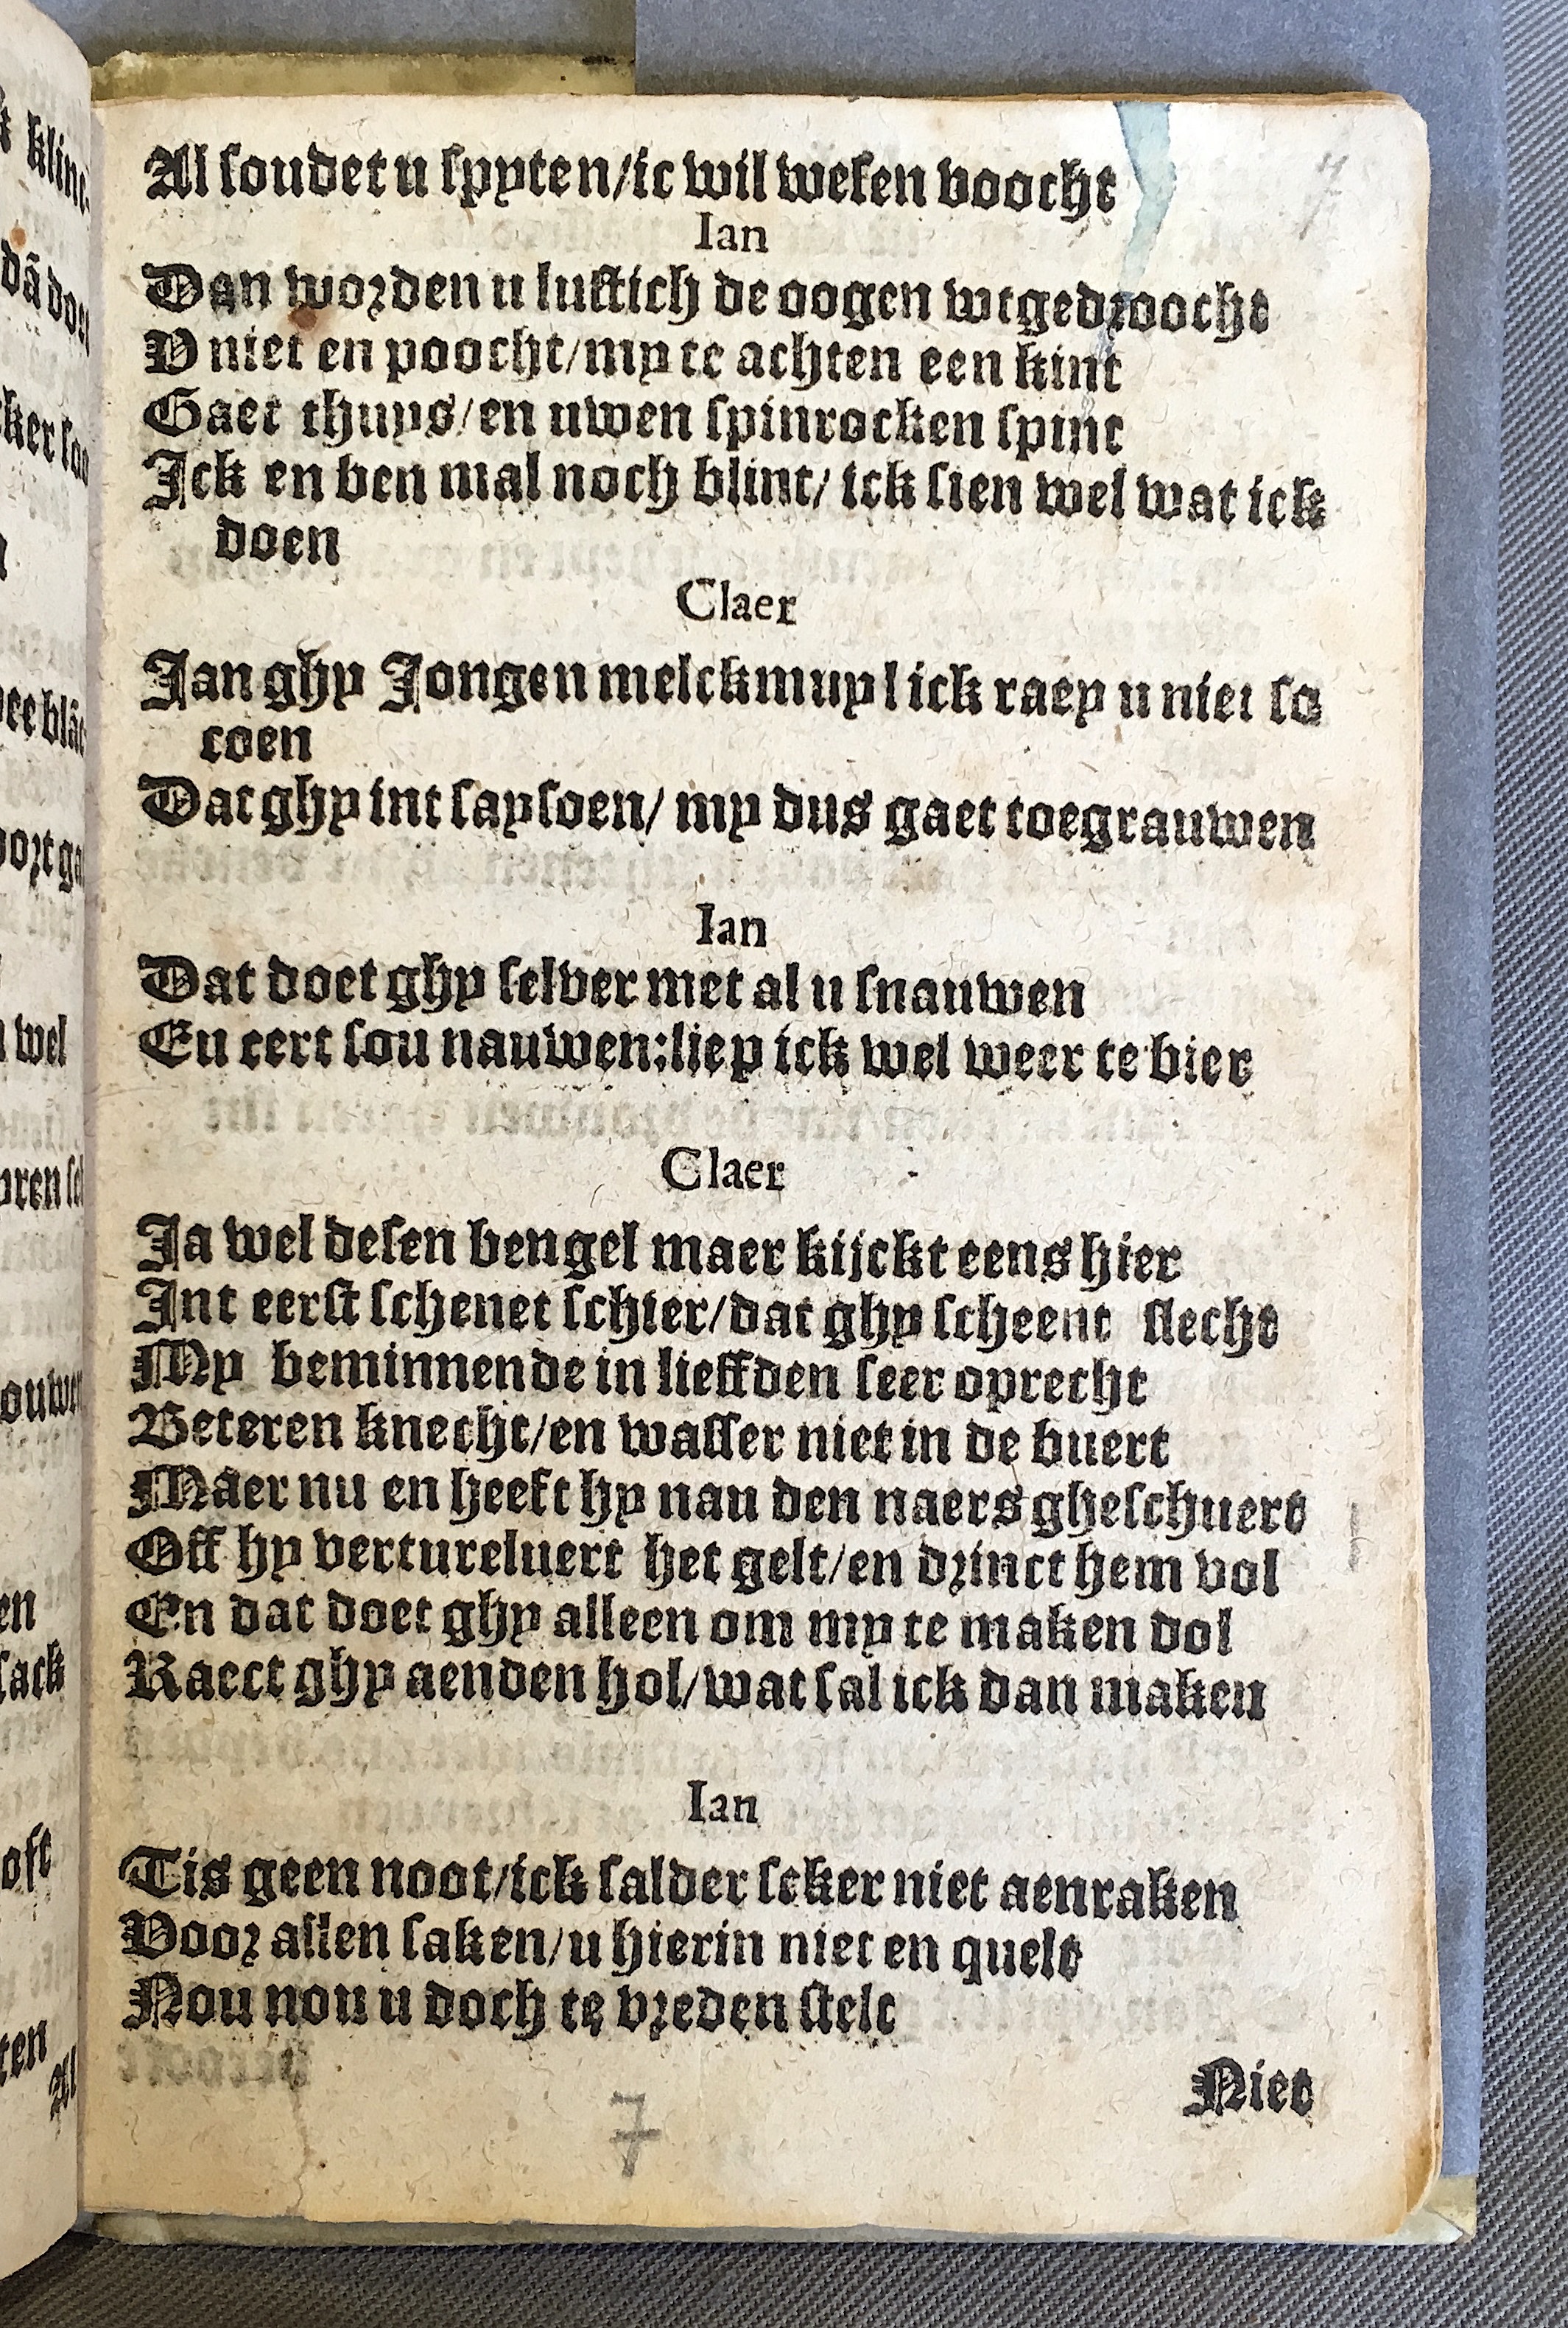 Al soudet u spyten/ic wil wesen voocht
Ian
Dan worden u lustich de oogen wtgedroocht
V niet en poocht/my te achten een kint
Gaet thuys/en uwen spinrocken spint
Ick en ben mal noch blint/ ick sien wel wat ick
doen
Claer
Jan ghy Jongen melckmuyl ick raey u niet so
coen
Dat ghy int saysoen/ my dus gaet toegrauwen
Ian
Dat doet ghy selver met al u snauwen
En tert sou nauwen:liep ick wel weer te bier
Claer
Ja wel desen bengel maer kijckt eens hier
Int eerst schenet schier/dat ghy scheent slecht
My beminnende in lieffden seer oprecht
Beteren knecht/en wasser niet in de buert
Maer nu en heeft hy nau den naers gheschuert
Off hy vertureluert het gelt/en drinct hem vol
En dat doet ghy alleen om my te maken dol
Raect ghy aenden hol/wat sal ick dan maken
Ian
Tis geen noot/ick salder seker niet aenraken
Voor allen saken/u hierin niet en quelt
Nou nou u doch te vreden stelt
Niet
7